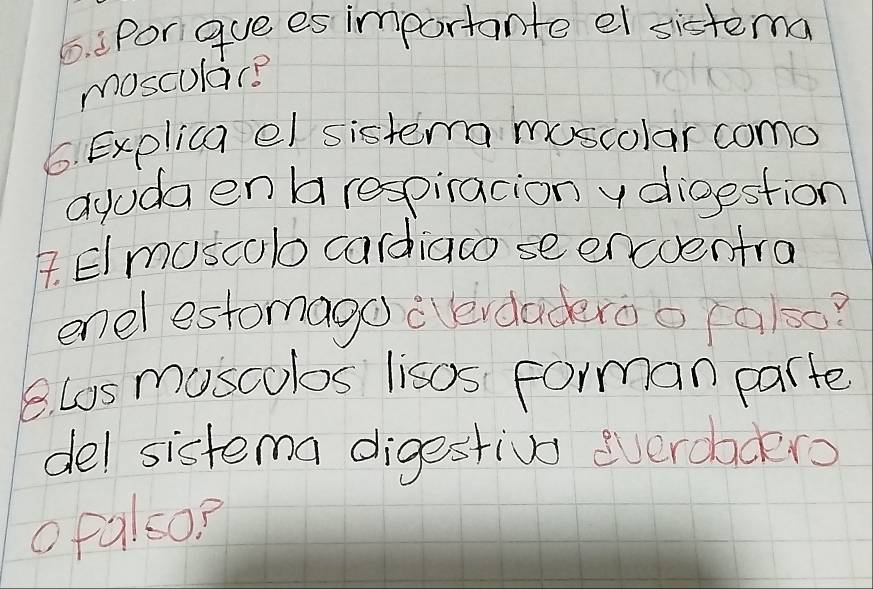 5. ¿Por que es importante el sistema
muscular?
6. Explica el sistema muscular como
ayuda en la respiracion y digestion
7. El musculo cardiaco se encuentra
en el estomago ¿Verdadero o falso?
8. Los musculos lisos forman parte
del sistema digestivo ¿Verdadero
o falso?